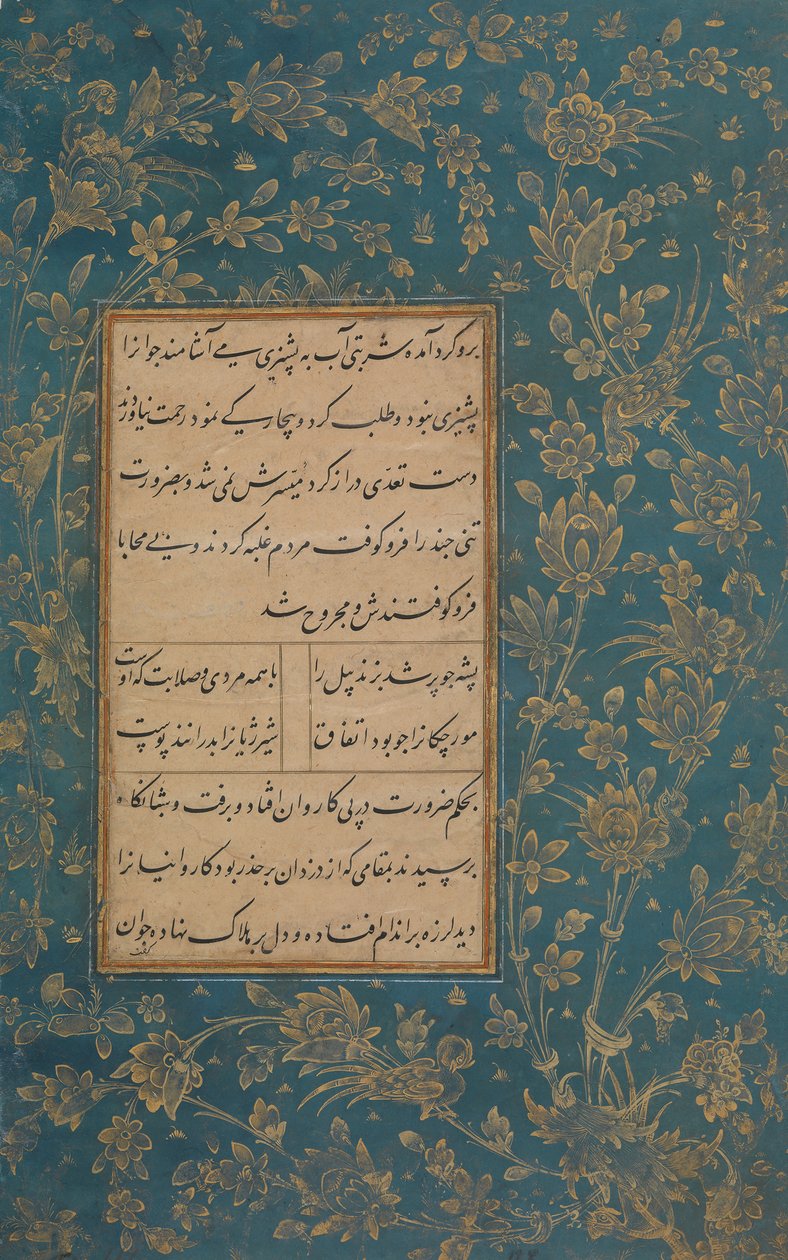 برو گرد آمده شربتی آب به پشیزی همی آشامند جوانرا
پشیزی نبود و طلب کرد و بیچارگی نمود رحمت نیاوردند
دست تعدّی دراز کرد میّسرش نمی شد و بضرورت
تنی چند را فرو کوفت مردم غلبه کردند و بی محابا
فرو کوفتندش و مجروح شد
پشه چو پر شد بزند پیل را با همه مردی و صلابت که اوست
مورچگانرا چو بود اتفاق شیر ژیانرا بدرانند پوست
بحکم ضرورت در پی کاروان افتاد و برفت و شبانگاه
برسیدند بمقامی که از دزدان بر حذر بود کاروانیانرا
دید لرزه بر اندام افتاده و دل بر هلاک نهاده جوان
گفت